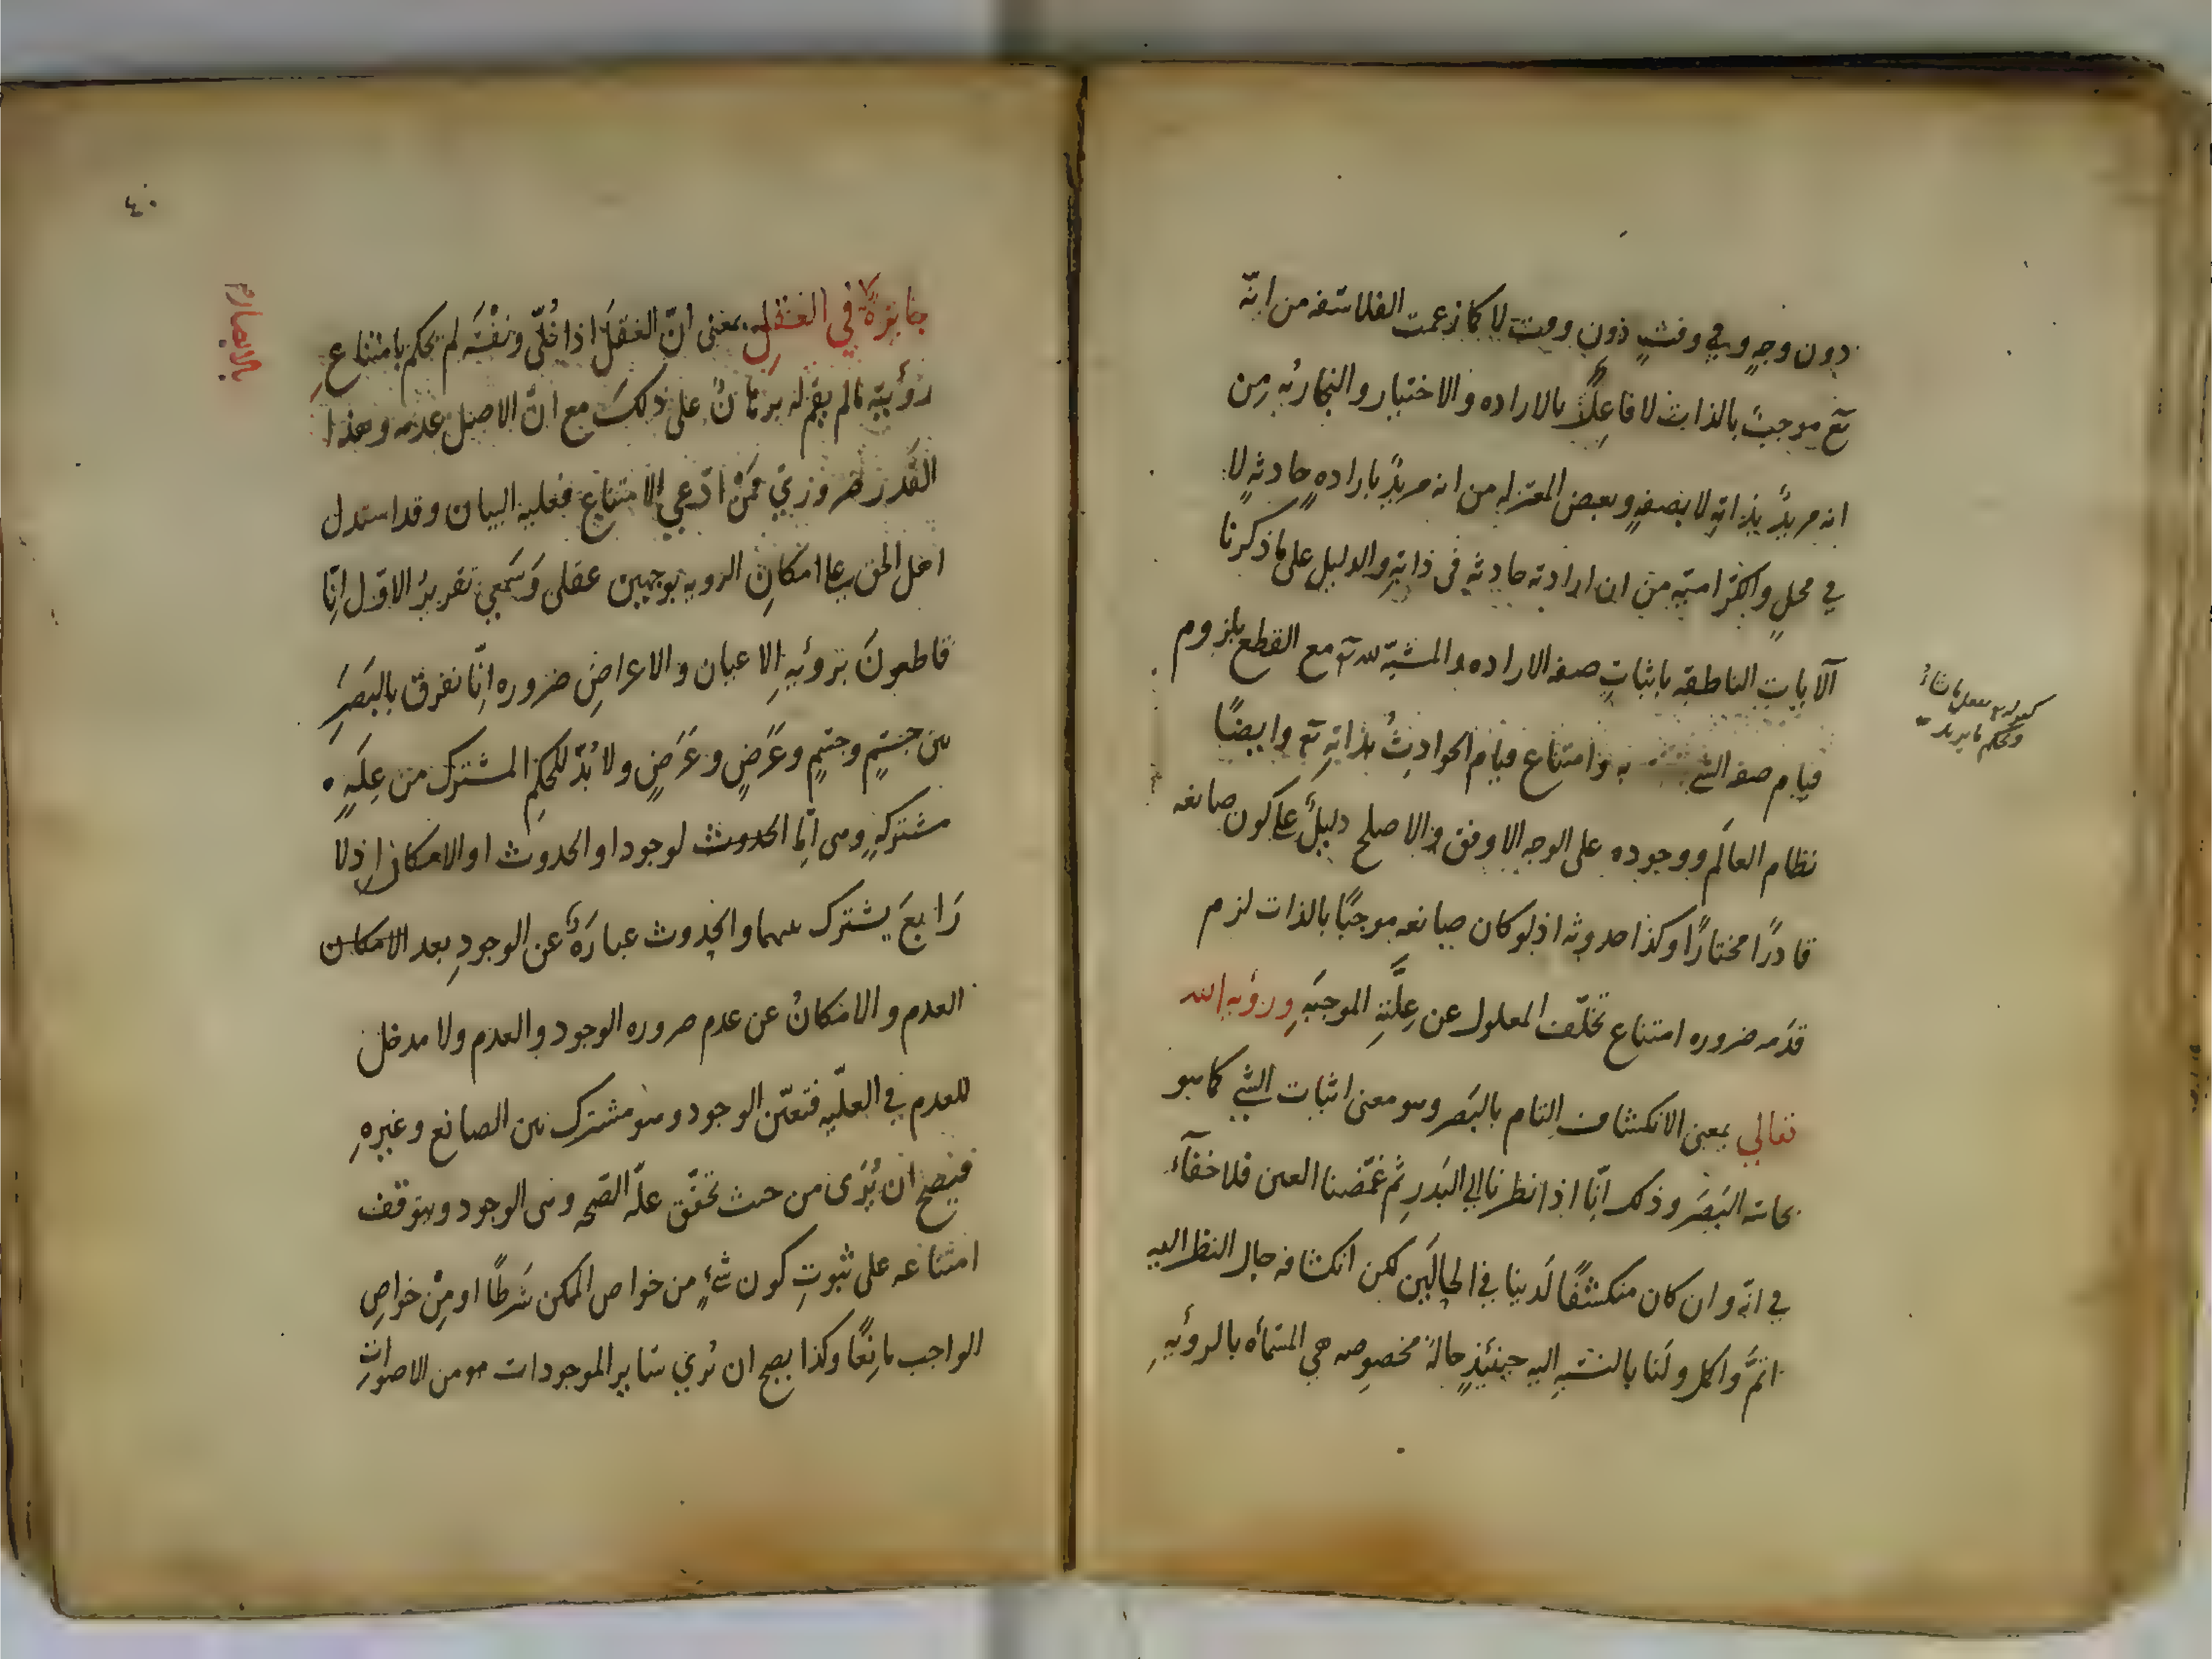 دون وجهٍ وفي وقتٍ دون وقت لا كما زعمت الفلاسفه من انّه
تع موجبٌ بالذات لا فاعلًا بالاراده والاختيار والنجاريّه من
انه مريدٌ بذاته لا بصفهٍ وبعض المعتزله من انه مريدٌ بارادهٍ حادثهٍ لا
في محلٍ والكرّاميّه من ان ارادته حادثه في ذاته والدليل على ما ذكرنا
الآيات الناطقه باثبات صفه الاراده والمشيّه لله تع مع القطع بلزوم
قيام صفه الشي به وامتناع قيام الحوادث بذاته تع وايضًا
نظام العالَم ووجوده على الوجه الاوفق والاصلح دليلٌ على كون صانعه
قادرًا مختارًا وكذا حدوثه اذ لو كان صانعه موجبًا بالذات لزم
قدَمه ضروره امتناع تخلّف المعلول عن علّته الموجبَه ورؤيه الله
تعالي بمعنى الانكشاف التام بالبَصر وهو معنى اثبات الشي كما هو
بحاسّه البَصَر وذلك انّا اذا نظرنا الي البَدر ثم غمّضنا العين فلا خفآء
في انّه وان كان منكشفًا لَدينا في الحالَين لكن انكشافه حال النظر اليه
اتمّ واكمل ولَنا بالنسبه اليه حينئذٍ حالهٌ مخصوصه هي المسمّاه بالرؤيهِ
ويحكم ما يريد
٤٠
جايزهٌ في العقلِ بمعنى انّ العَقلَ اذا خُلّي ونَفْسَه لم يحكم بامتناعِ
رؤيته ما لم يقم له برهانٌ على ذلكَ مع انّ الاصل عدمه وهذا
القَدر ضروري فمَنْ ادّعي الامتناع فعليه البيان وقد استدل
اهل الحق على امكانِ الرويه بوجهين عقلى وَسَمعي تقريرُ الاوّل انّا
قاطعونَ برؤيهِ الاعيان والاعراضِ ضروره انّا نفرق بالبَصَرِ
بين جسْمٍ وجسْمٍ وعَرَضٍ وعَرَضٍ ولا بُدّ للحكمِ المشترك من علّهٍ
مشتركهٍ وهى امّا الحدوث لوجود او الحدوث او الامكان اذ لا
رَابعَ يشترك بينهما والحدوث عبارَهٌ عن الوجودِ بعد الامكان
العدم والامكانُ عن عدم ضروره الوجود والعدم ولا مدخل
للعدم في العلّيه فتعيّن الوجود وهو مشترك بين الصانع وغيرهِ
فيصحّ ان يُرَى من حيث تحقّق علّه الصّحه وهى الوجود ويتوقف
امتناعه على ثبوتِ كون شيءٍ من خواص الممكن شَرطًا او مِنْ خواصِ
الواجب مانعًا وكذا يصح ان نُري ساير الموجودات من الاصوات
بالابصار